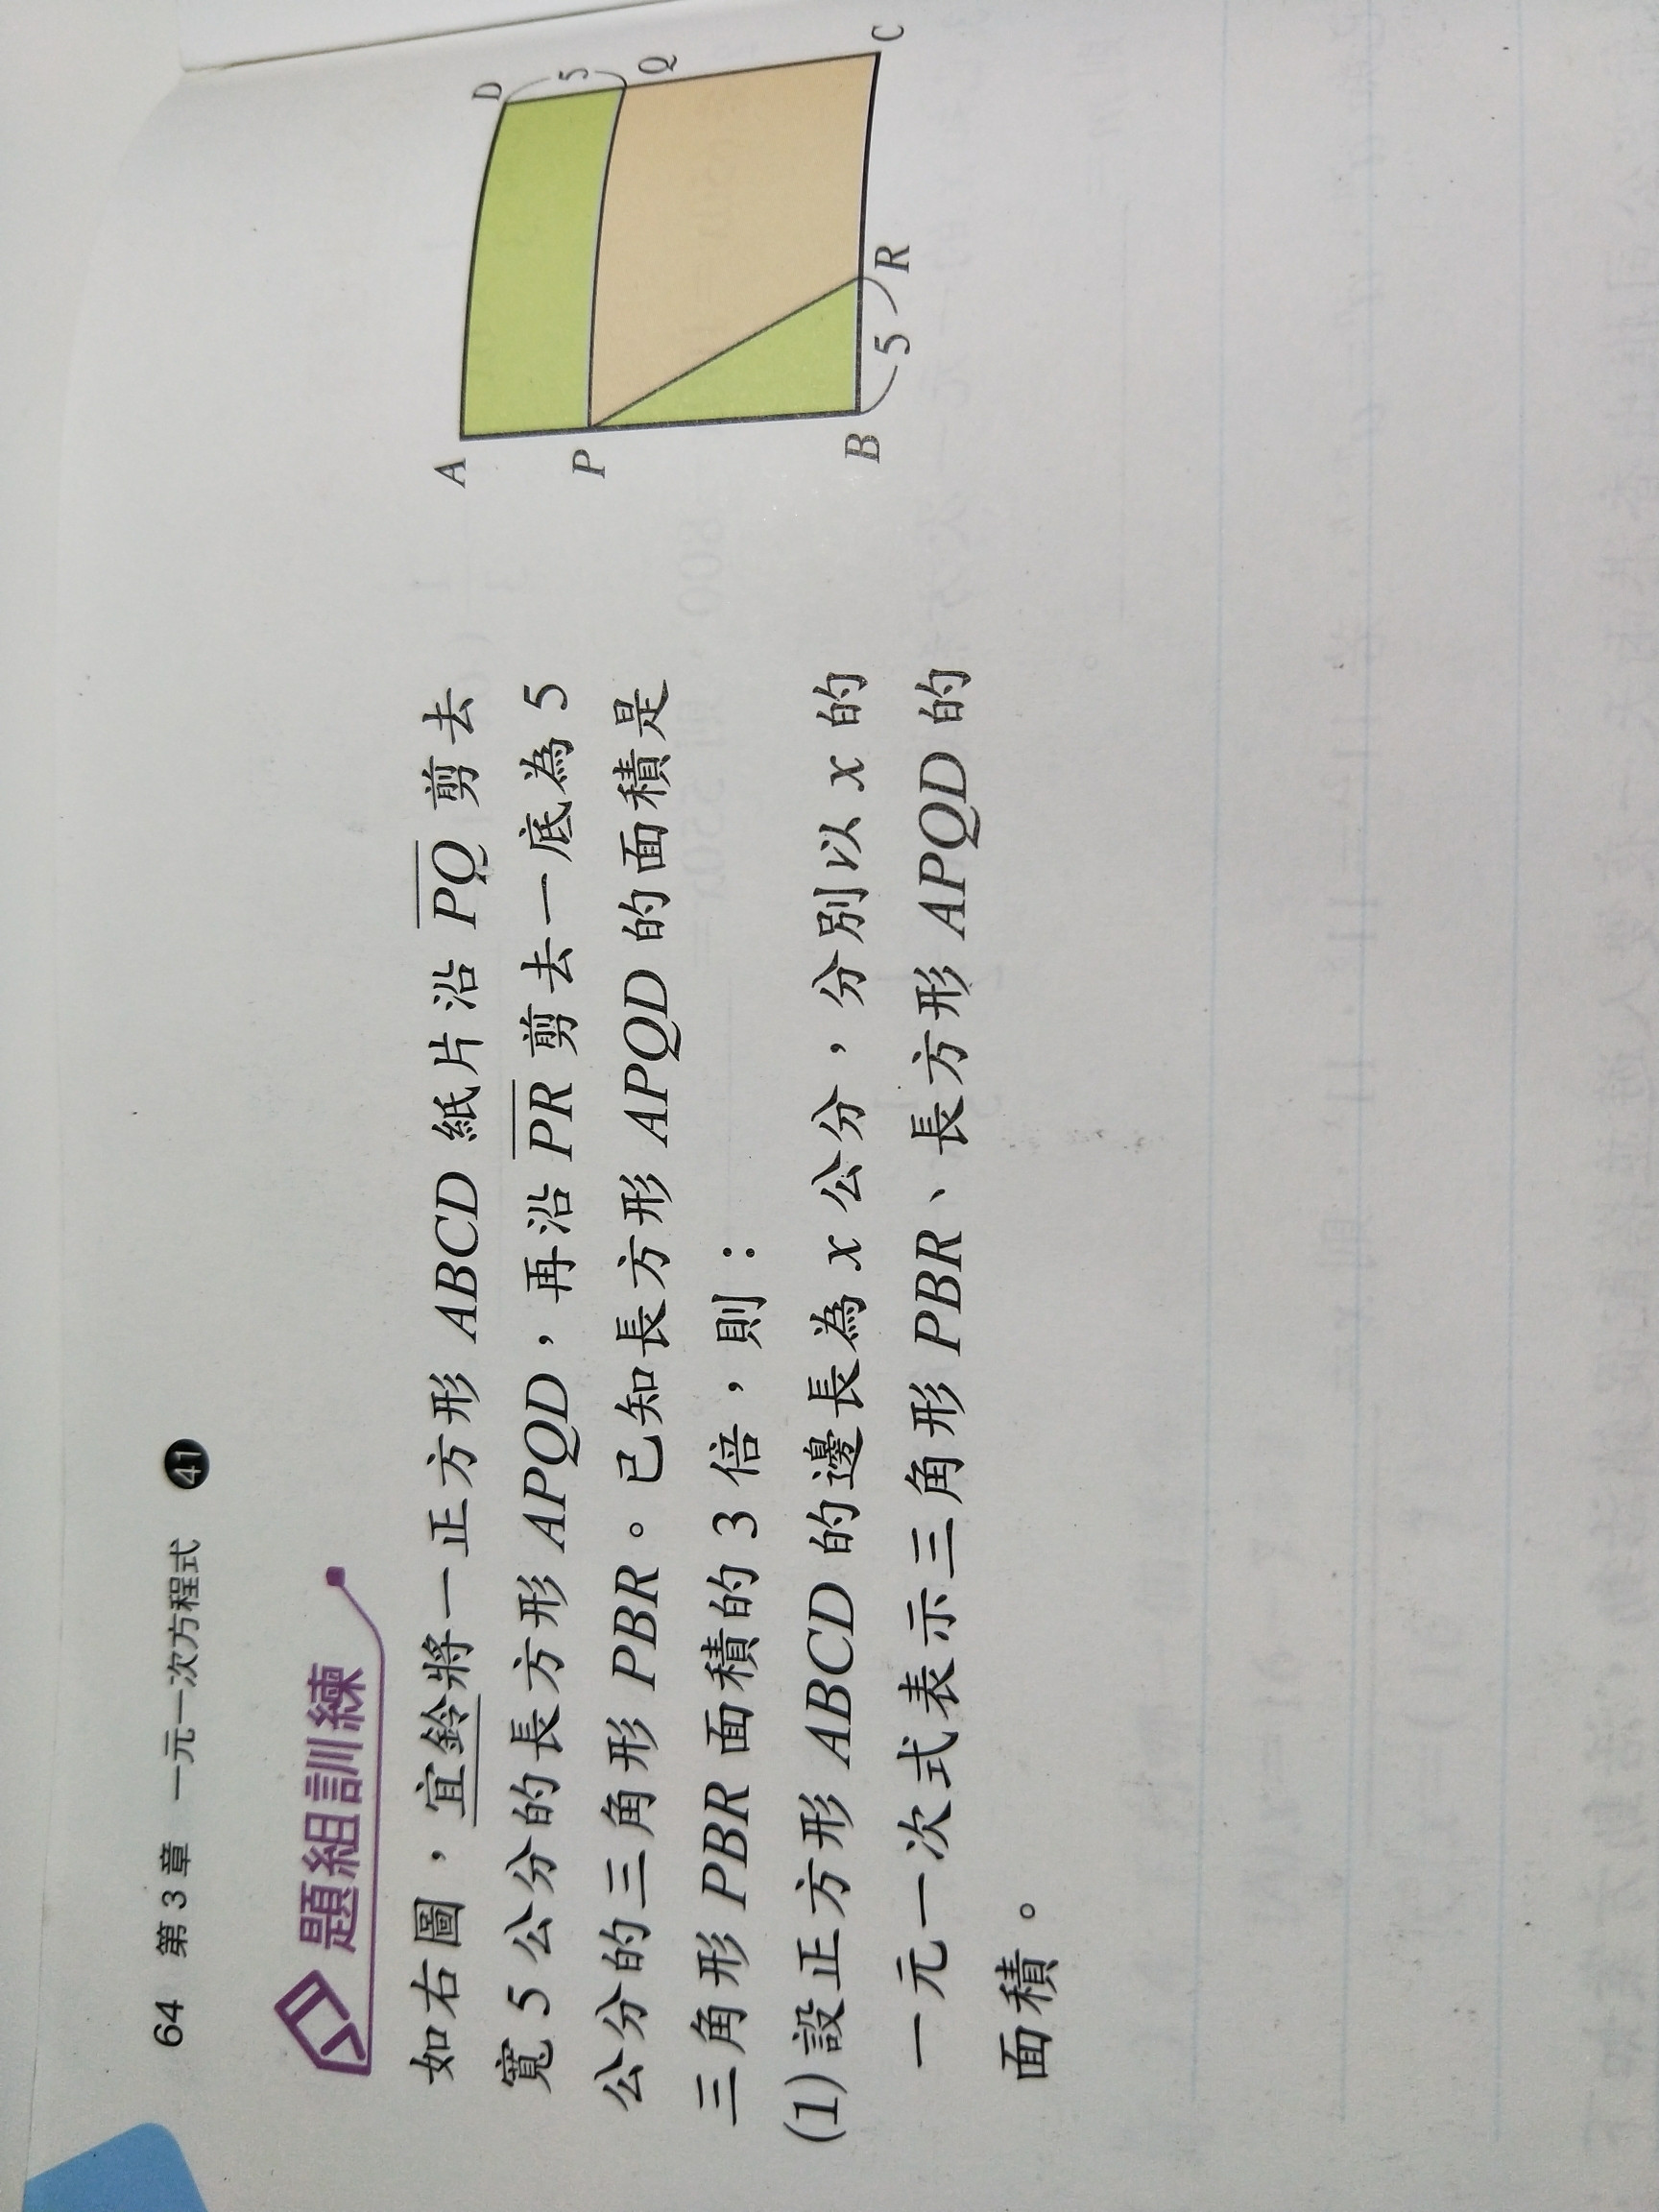 64 第 3 章 一元一次方程式 41
題組訓練
如右圖，宜鈴將一正方形 ABCD 紙片沿 PQ 剪去
寬 5 公分的長方形 APQD，再沿 PR 剪去一底為 5
公分的三角形 PBR。已知長方形 APQD 的面積是
三角形 PBR 面積的 3 倍，則：
(1) 設正方形 ABCD 的邊長為 x 公分，分別以 x 的
一元一次式表示三角形 PBR、長方形 APQD 的
面積。
A
D
5
P
Q
B
5
R
C